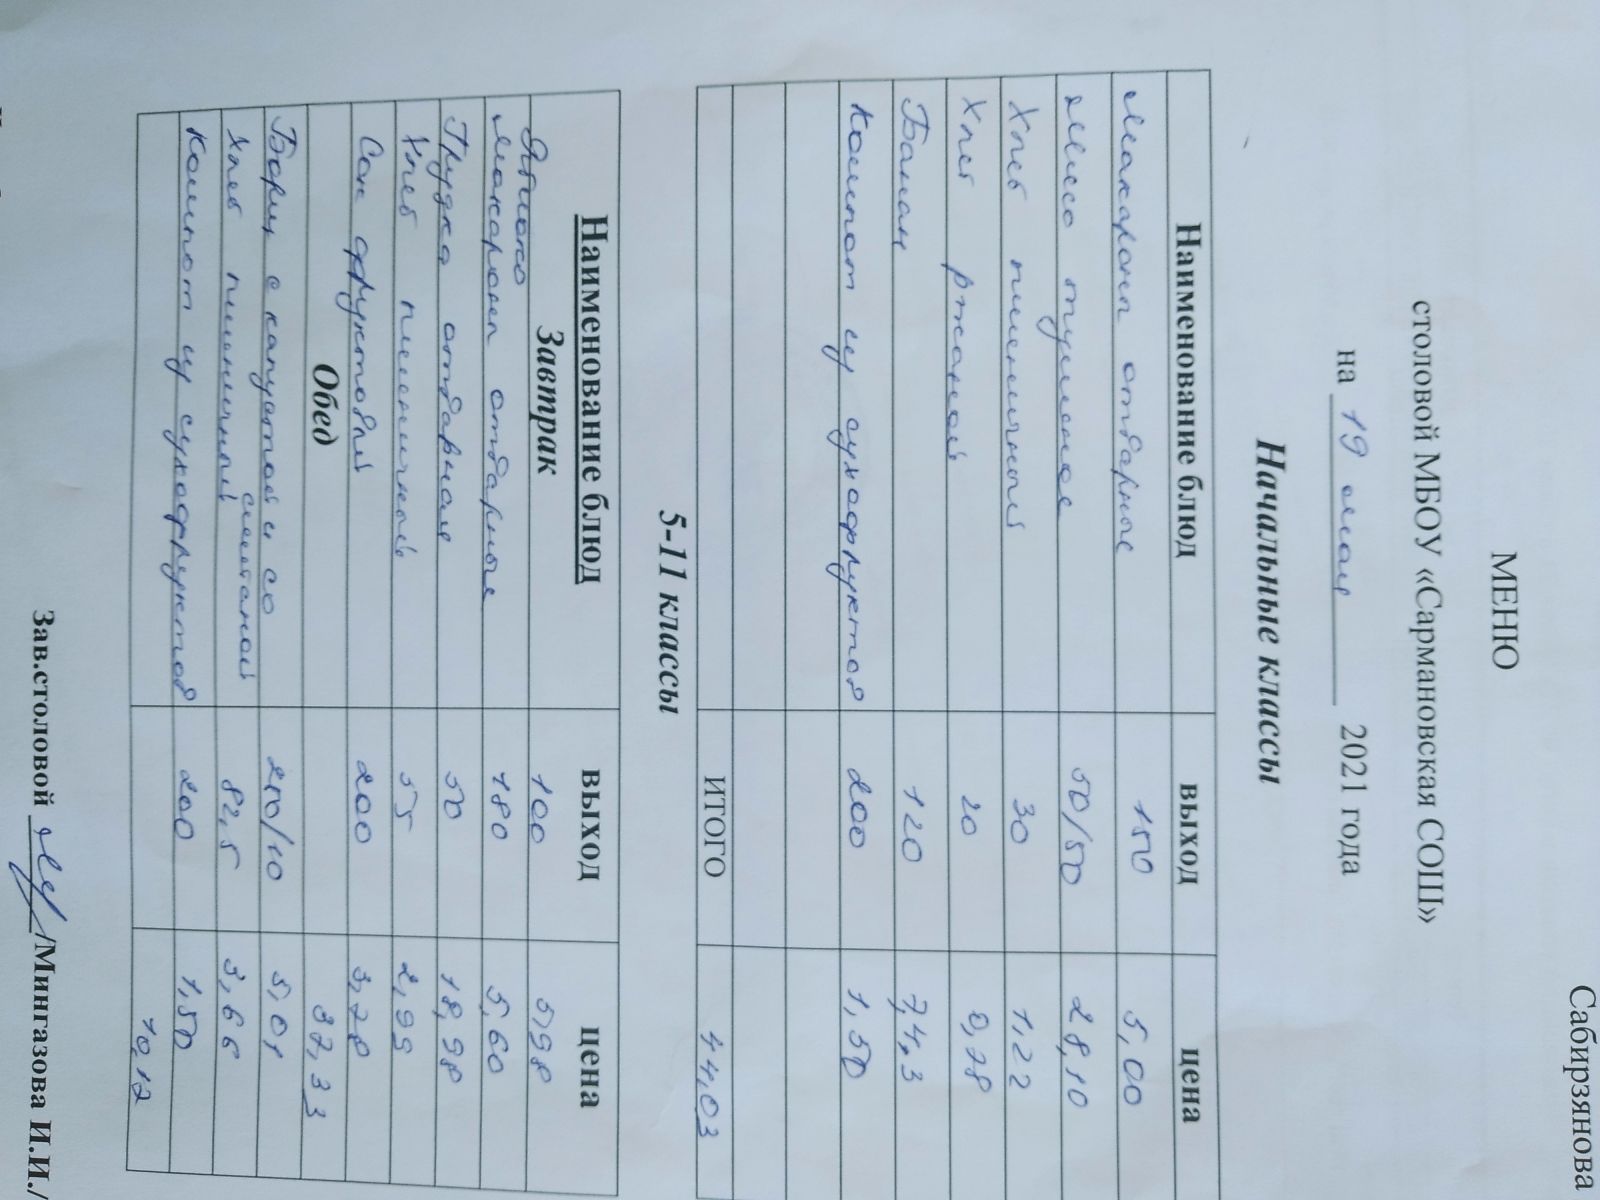 Сабирзянова
МЕНЮ
столовой МБОУ «Сармановская СОШ»
на 19 мая 2021 года
Начальные классы
Наименование блюд выход цена
Макароны отварные 150 5,00
Мясо тушеное 50/50 28,10
Хлеб пшеничный 30 1,22
Хлеб ржаной 20 0,78
Банан 120 7,43
Компот из сухофруктов 200 1,50
ИТОГО 44,03
5-11 классы
Наименование блюд выход цена
Завтрак
Яблоко 100 5,98
Макароны отварные 180 5,60
Грудка отварная 50 18,98
Хлеб пшеничный 55 2,99
Сок фруктовый 200 3,78
Обед 37,33
Борщ с капустой и со сметаной 250/10 5,01
Хлеб пшеничный 82,5 3,66
Компот из сухофруктов 200 1,50
10,17
Зав.столовой /Мингазова И.И./